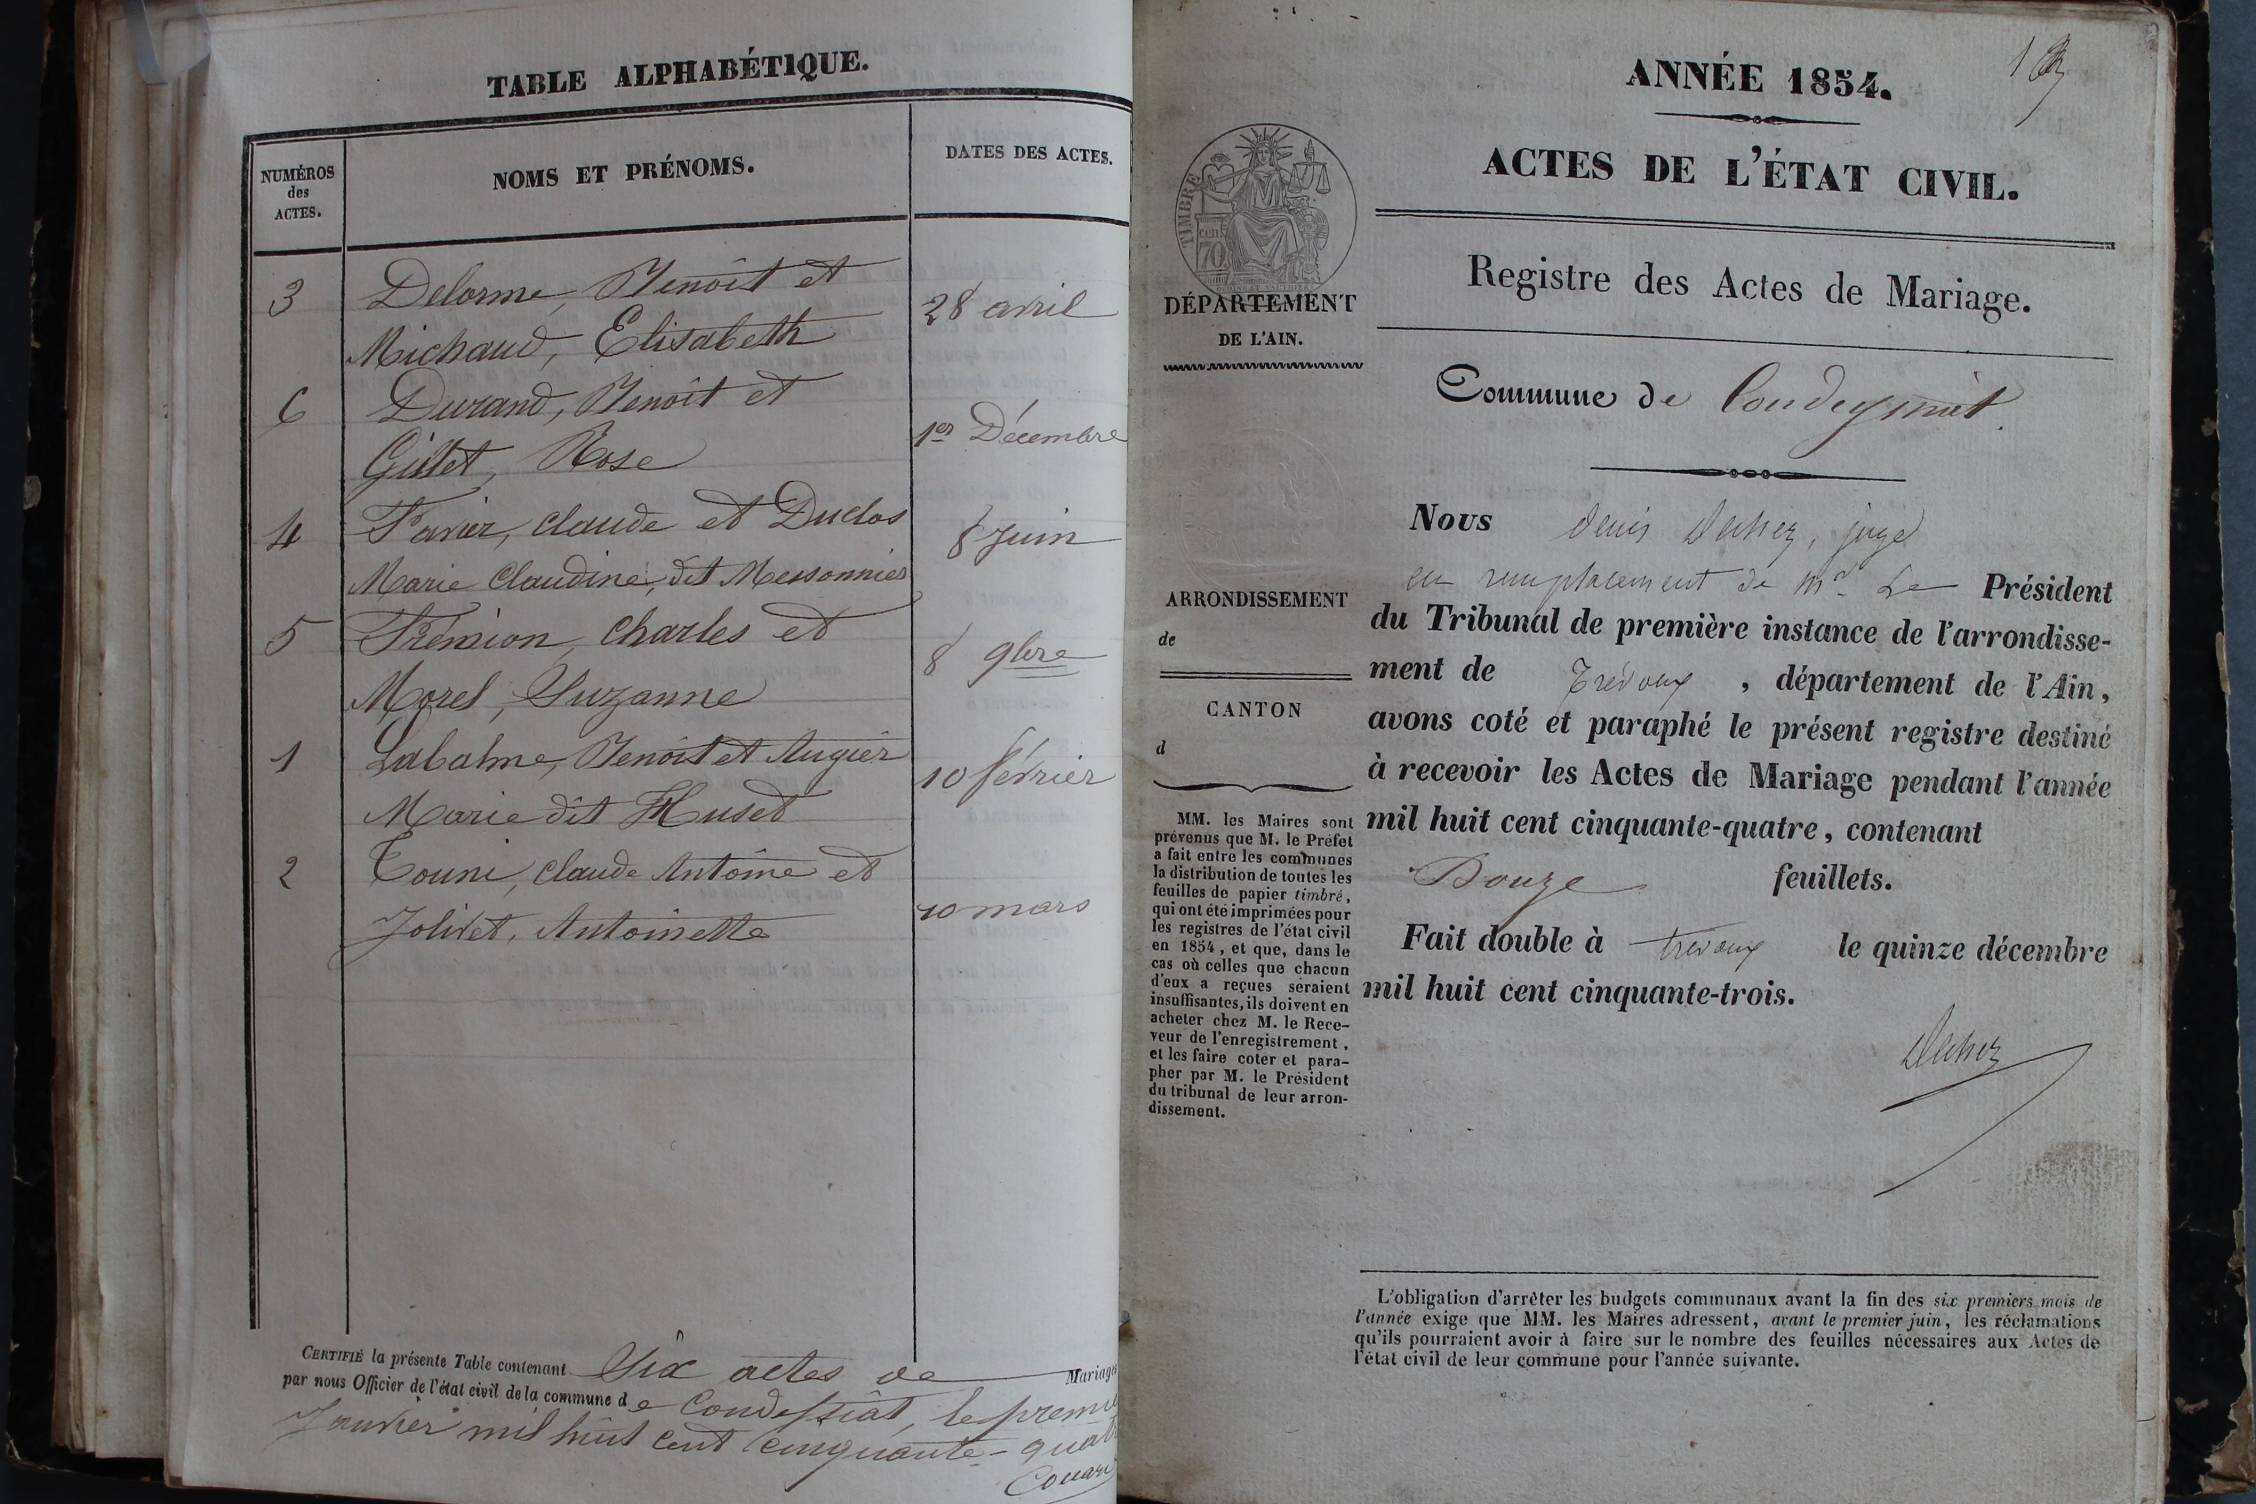 TABLE ALPHABÉTIQUE.
NUMÉROS
des
ACTES.
NOMS ET PRÉNOMS.
DATES DES ACTES.
3 Delorme, Benoît et
Michaud, Elisabeth 28 avril
6 Durand, Benoît et
Gillet, Rose 1er Décembre
4 Favier, Claude et Duclos
Marie Claudine, dit Messonnier 8 Juin
5 Frémion, Charles et
Morel, Suzanne 8 9bre
1 Labalme, Benoît et Augier
Marie dit Huset 10 février
2 Touni, Claude Antoine et
Jolivet, Antoinette 10 mars
CERTIFIÉ la présente Table contenant Six actes de Mariage
par nous Officier de l'état civil de la commune de Condessiat, le premier
Janvier mil huit cent cinquante-quatre
ANNÉE 1854.
ACTES DE L'ÉTAT CIVIL.
TIMBRE
70 cen
DÉPARTEMENT
DE L'AIN.
Registre des Actes de Mariage.
Commune de
Nous Denis Duhez, juge
en remplacement de Mr. Le Président
du Tribunal de première instance de l'arrondisse-
ment de Trévoux, département de l'Ain,
avons coté et paraphé le présent registre destiné
à recevoir les Actes de Mariage pendant l'année
mil huit cent cinquante-quatre, contenant
Douze feuillets.
Fait double à Trévoux le quinze décembre
mil huit cent cinquante-trois.
Duhez
ARRONDISSEMENT
de
CANTON
d
MM. les Maires sont
prévenus que M. le Préfet
a fait entre les communes
la distribution de toutes les
feuilles de papier timbré,
qui ont été imprimées pour
les registres de l'état civil
en 1854, et que, dans le
cas où celles que chacun
d'eux a reçues seraient
insuffisantes, ils doivent en
acheter chez M. le Rece-
veur de l'enregistrement,
et les faire coter et para-
pher par M. le Président
du tribunal de leur arron-
dissement.
L'obligation d'arrêter les budgets communaux avant la fin des six premiers mois de
l'année exige que MM. les Maires adressent, avant le premier juin, les réclamations
qu'ils pourraient avoir à faire sur le nombre des feuilles nécessaires aux Actes de
l'état civil de leur commune pour l'année suivante.